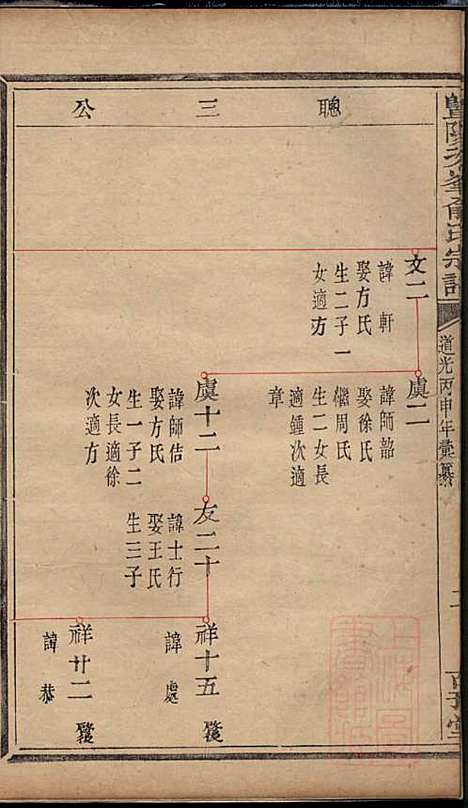 聰三公
文二
諱軒
娶方氏
生二子一
女適方
虞二
諱師韶
娶徐氏
繼周氏
生二女長
適鍾次適
章
虞十二
諱師佶
娶方氏
生一子二
女長適徐
次適方
友二十
諱士行
娶王氏
生三子
祥十五
諱處
祥廿二
諱恭
暨陽次峯俞氏宗譜
道光丙申年彙纂